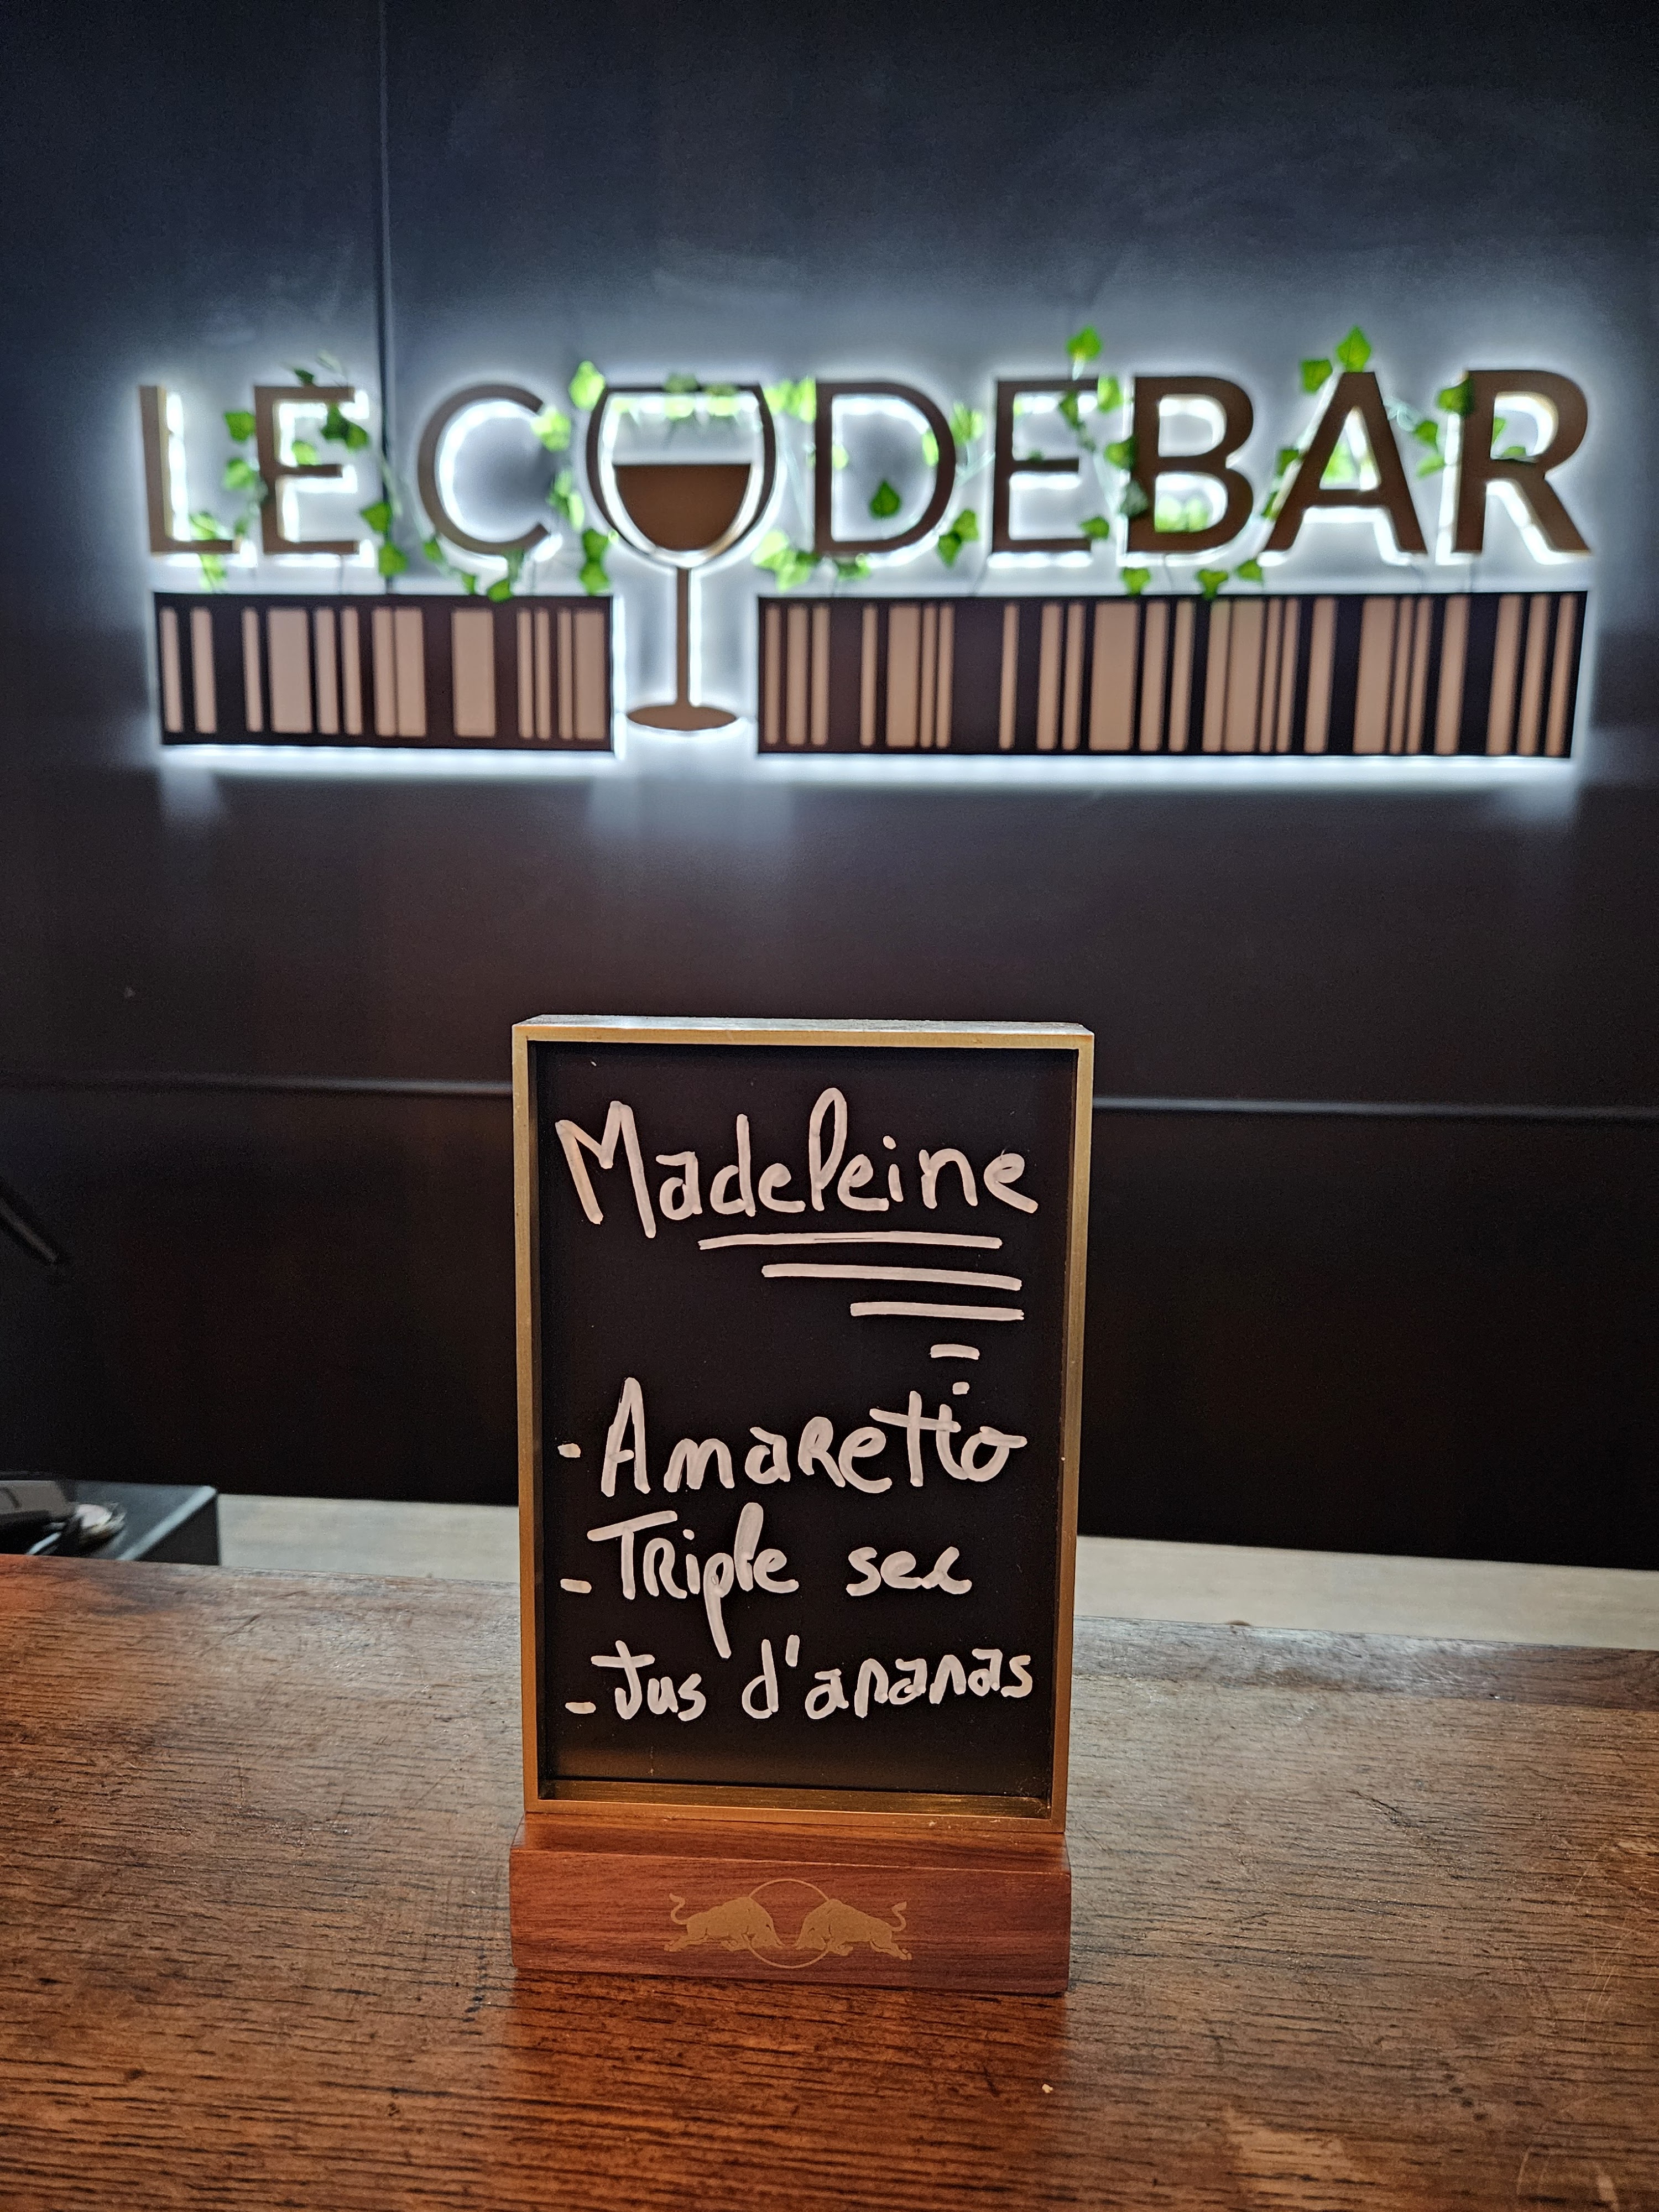 LE CODEBAR
Madeleine
- Amaretto
- Triple sec
- Jus d'ananas